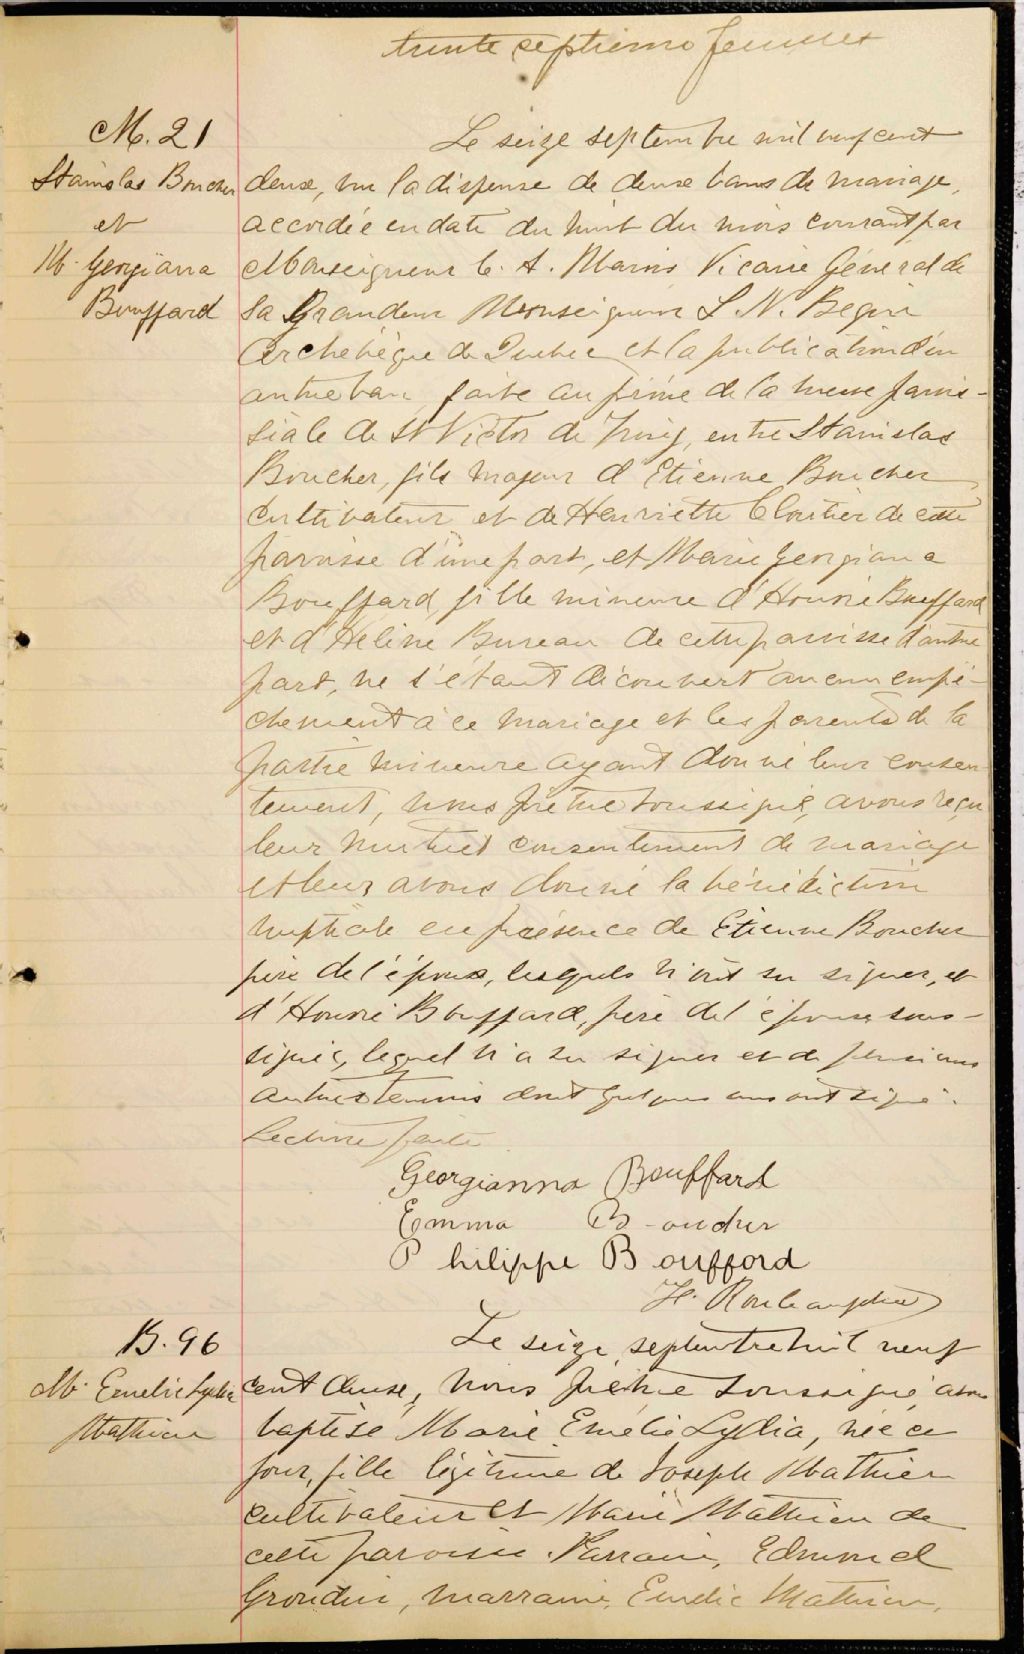 trente septième feuillet
M. 21
Stanislas Boucher
et
M. Georgiana
Bouffard
Le seize septembre mil neuf cent
deux, vu la dispense de deux bans de mariage,
accordée en date du huit du mois courant par
Monseigneur C. A. Marois Vicaire Général de
Sa Grandeur Monseigneur L. N. Begin
Archevêque de Québec et la publication d'un
autre ban faite au prône de la messe parois-
siale de St Victor de Tring, entre Stanislas
Boucher, fils majeur d'Etienne Boucher
cultivateur et de Henriette Cloutier de cette
paroisse d'une part, et Marie Georgiana
Bouffard, fille mineure d'Honoré Bouffard
et d'Hélène Bureau de cette paroisse d'autre
part, ne s'étant découvert aucun empê-
chement à ce mariage et les parents de la
partie mineure ayant donné leur consen-
tement, nous prêtre soussigné, avons reçu
leur mutuel consentement de mariage
et leur avons donné la bénédiction
nuptiale en présence de Etienne Boucher
père de l'époux, lesquels n'ont su signer, et
d'Honoré Bouffard, père de l'épouse sous-
signée, lequel n'a su signer et de plusieurs
autres témoins dont quelques uns ont signé.
Lecture faite
Georgianna Bouffard
Emma Boucher
Philippe Boufford
H. Rouleau ptre
B. 96
M. Emelie Lydia
Mathieu
Le seize septembre mil neuf
cent deux, nous prêtre soussigné avons
baptisé Marie Emélie Lydia, née ce
jour, fille légitime de Joseph Mathieu
cultivateur et Marie Mathieu de
cette paroisse. Parrain, Edmond
Grondin, marraine, Emelie Mathieu,